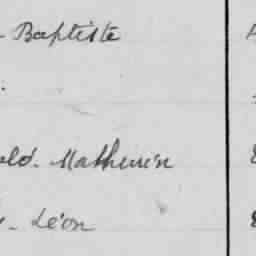 Baptiste
Mathurin
Léon